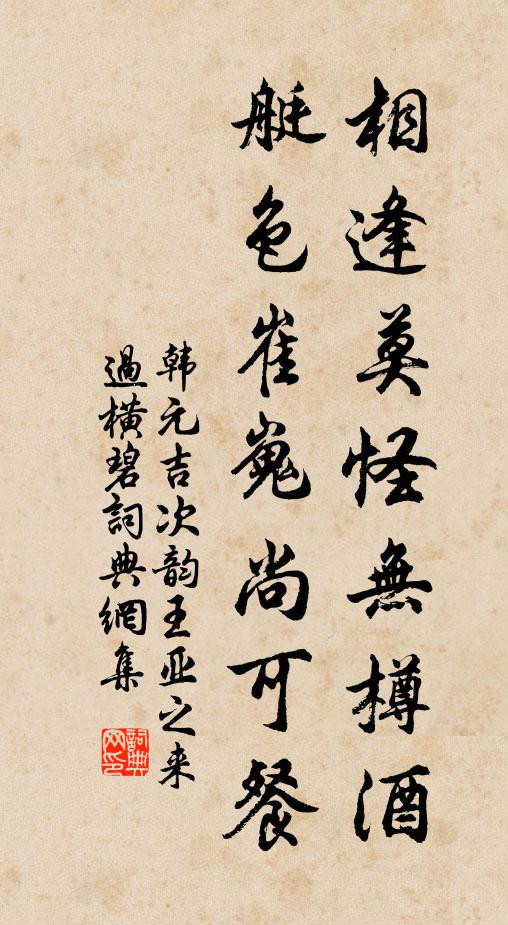 相逢莫怪無樽酒
艇色崔嵬尚可餐
韩元吉次韵王亚之来
過橫碧詞典網集
詞典网印